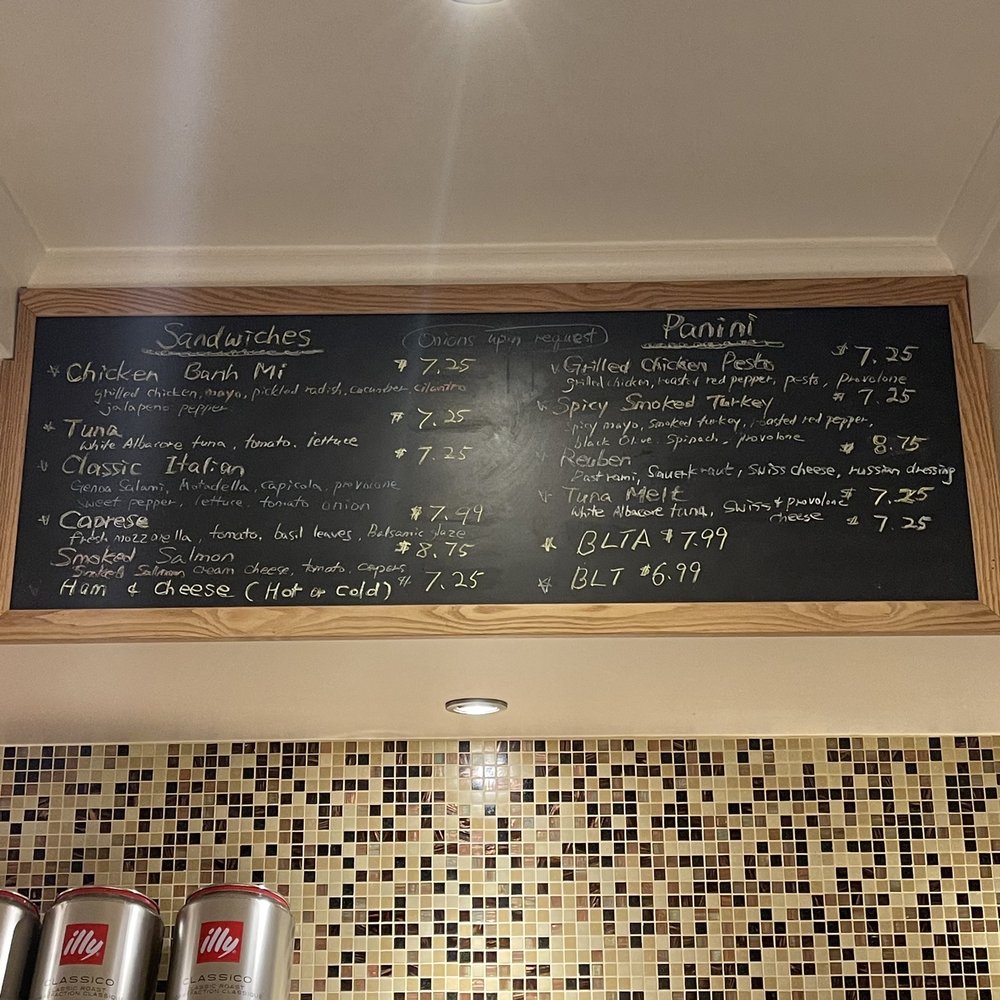 Sandwiches
Onions upon request
* Chicken Banh Mi $ 7.25
grilled chicken, mayo, pickled radish, cucumber, cilantro
jalapeno pepper
* Tuna $ 7.25
White Albacore tuna, tomato, lettuce
Classic Italian $ 7.25
Genoa Salami, Motadella, capicola, provolone
sweet pepper, lettuce, tomato onion
* Caprese $ 7.99
fresh mozzorella, tomato, basil leaves, Balsamic glaze
Smoked Salmon $8.75
Smoked Salmon cream cheese, tomato, capers
Ham & cheese (Hot or cold) $ 7.25
Panini
Grilled Chicken Pesto $7.25
grilled chicken, roasted red pepper, pesto, provolone
Spicy Smoked Turkey $ 7.25
spicy mayo, smoked turkey, roasted red pepper,
black olive, spinach, provolone
Reuben $ 8.75
Pastrami, Sauerkraut, Swiss cheese, russian dressing
Tuna Melt $ 7.25
White Albacore tuna, Swiss & provolone
cheese $ 7.25
* BLTA $7.99
* BLT $6.99
illy
CLASSICO
CLASSIC ROAST
illy
CLASSICO
CLASSIC ROAST